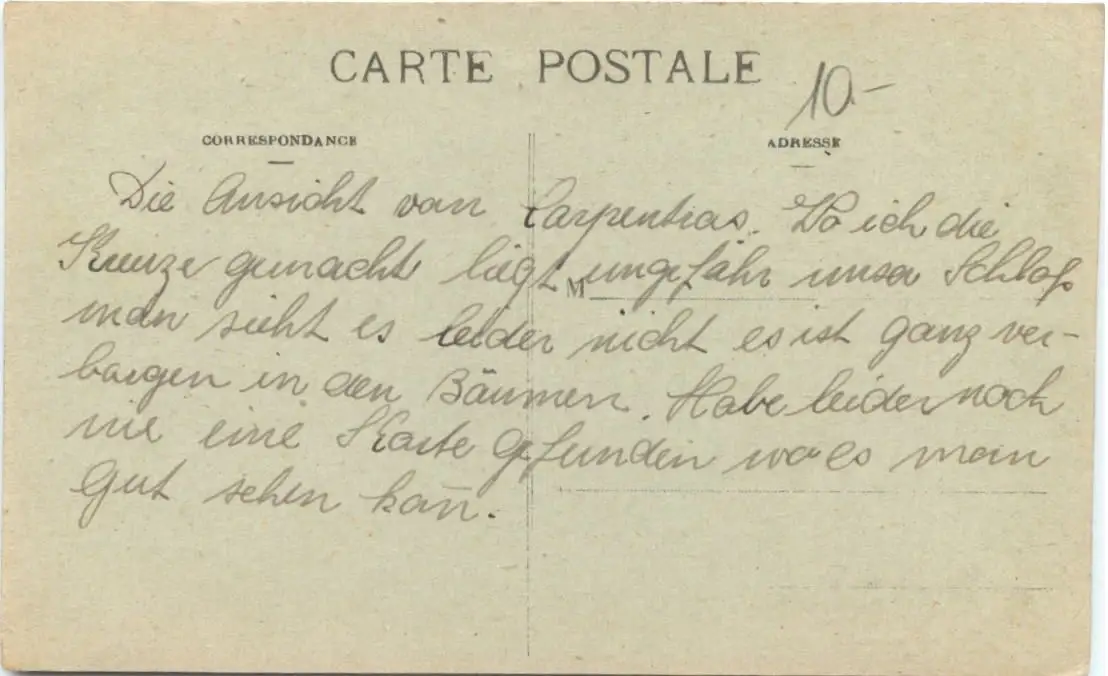 CARTE POSTALE
10.-
CORRESPONDANCE
ADRESSE
Die Ansicht von Carpentras. Wo ich die
Kreuze gemacht liegt ungefähr unser Schloß
M
man sieht es leider nicht es ist ganz ver-
borgen in den Bäumen. Habe leider noch
nie eine Karte gefunden wo es man
gut sehen kan̄.